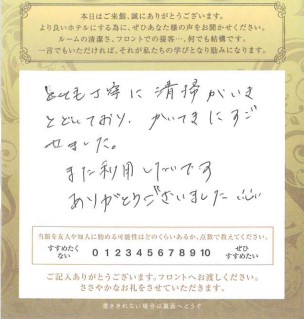 本日はご来館、誠にありがとうございます。
より良いホテルにする為に、ぜひあなた様の声をお聞かせください。
ルームの清潔さ、フロントでの接客…、何でも結構です。
一言でもいただければ、それが私たちの学びとなり励みになります。
とても丁寧に清掃がいき
とどいており、かいてきにすご
せました。
また利用したいです
ありがとうございました
当館を友人や知人に勧める可能性はどのくらいあるか、点数で教えてください。
すすめたく
ない
0 1 2 3 4 5 6 7 8 9 10
ぜひ
すすめたい
ご記入ありがとうございます。フロントへお渡しください。
ささやかなお礼をさせていただきます。
書ききれない場合は裏面へどうぞ